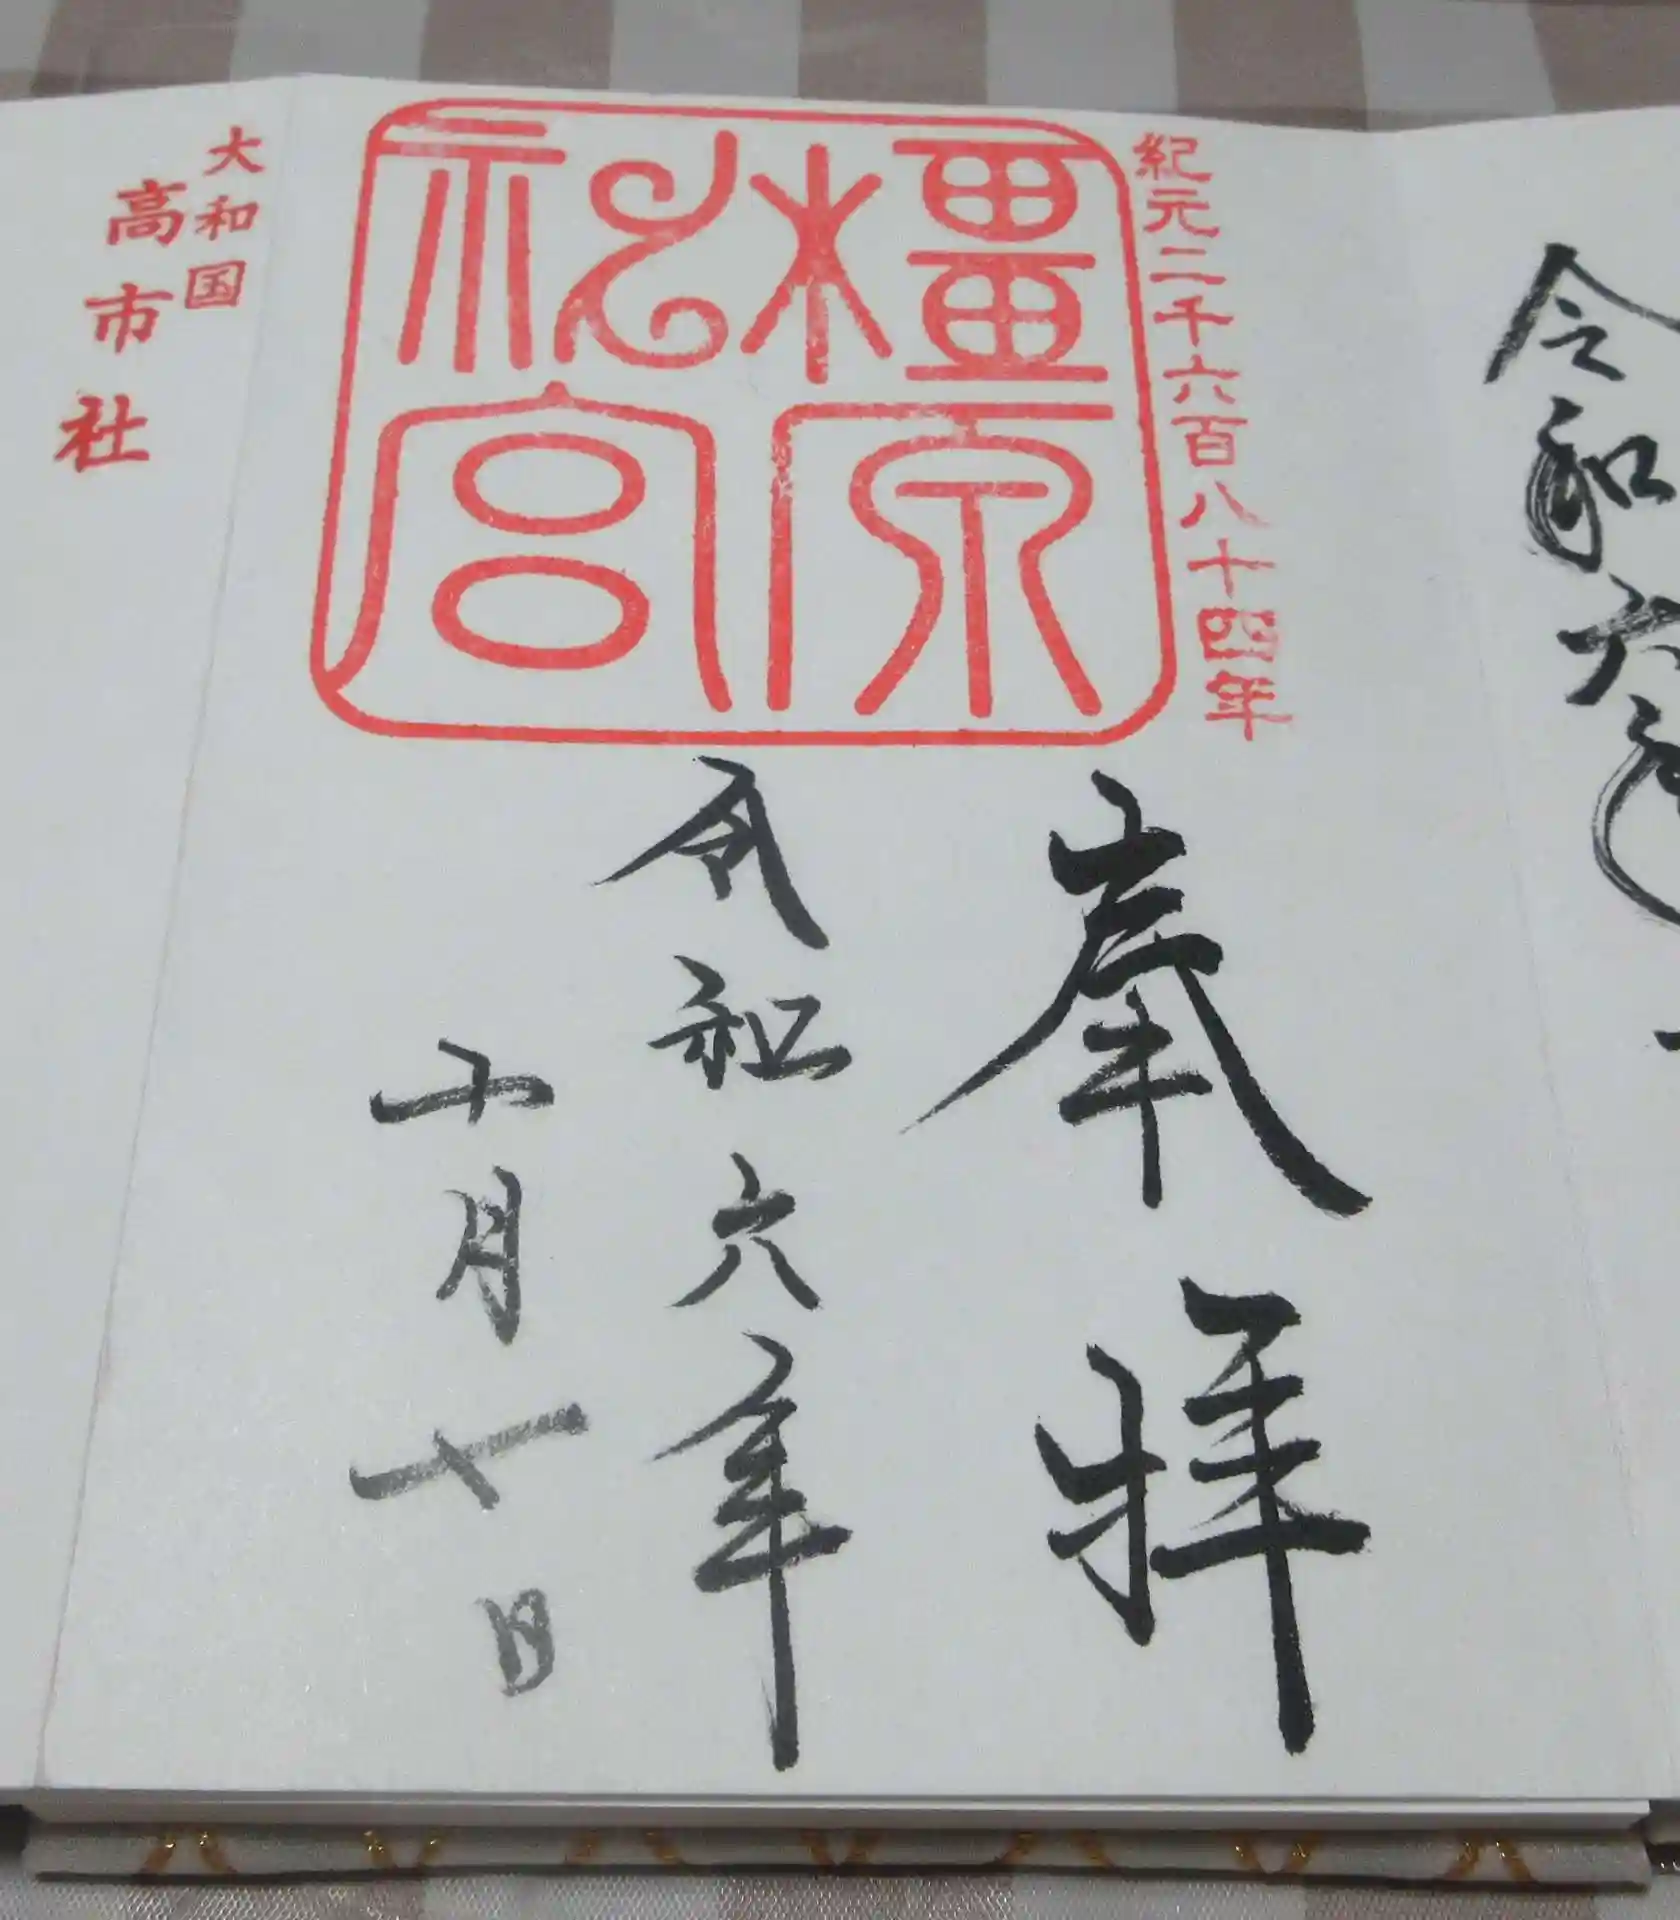 令和六年
紀元二千六百八十四年
橿原神宮
奉拝
令和六年
十月十日
大和国
高市社